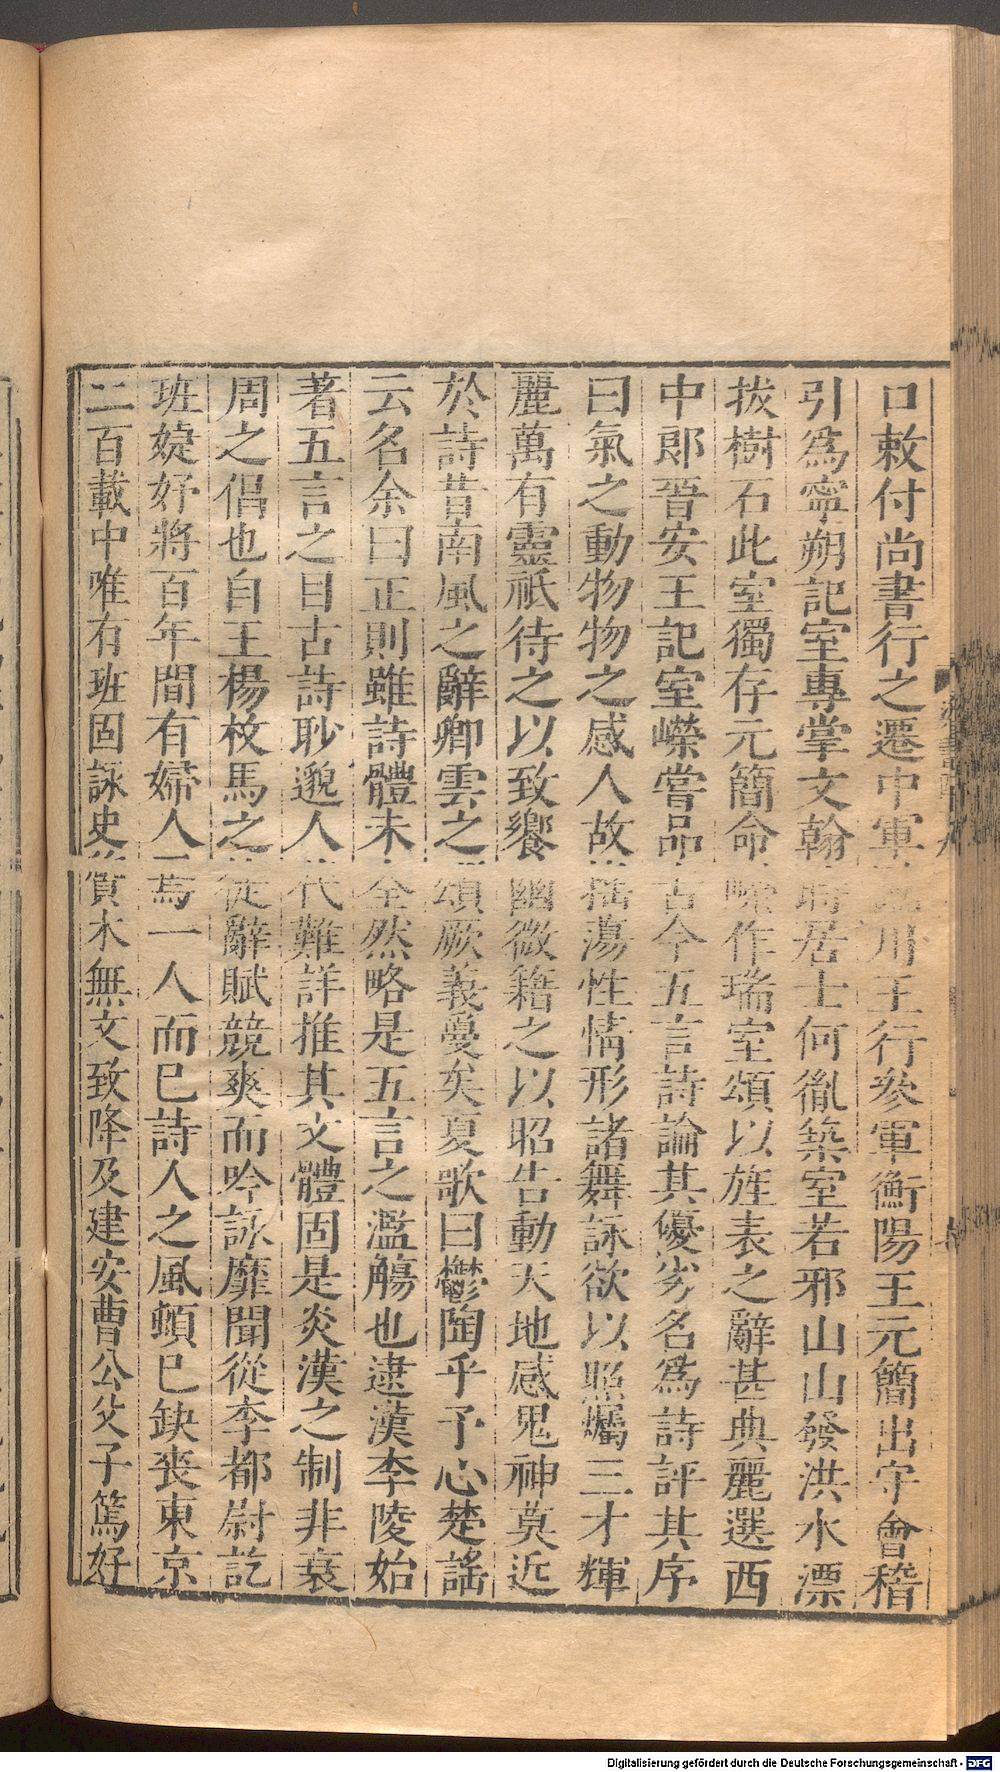 口敕付尚書行之遷中軍川王行參軍衡陽王元簡出守會稽
引為寧朔記室專掌文翰時居士何胤築室若邪山山發洪水漂
拔樹石此室獨存元簡命嶸作瑞室頌以旌表之辭甚典麗選西
中郎晉安王記室嶸嘗品古今五言詩論其優劣名為詩評其序
曰氣之動物物之感人故搖蕩性情形諸舞詠欲以照燭三才輝
麗萬有靈祇待之以致饗幽微籍之以昭告動天地感鬼神莫近
於詩昔南風之辭卿雲之頌厥義夐矣夏歌曰鬱陶乎予心楚謠
云名余曰正則雖詩體未全然略是五言之濫觴也逮漢李陵始
著五言之目古詩眇邈人代難詳推其文體固是炎漢之制非衰
周之倡也自王楊枚馬之徒辭賦競爽而吟詠靡聞從李都尉訖
班婕妤將百年間有婦人焉一人而已詩人之風頓已缺喪東京
二百載中唯有班固詠史質木無文致降及建安曹公父子篤好
Digitalisierung gefördert durch die Deutsche Forschungsgemeinschaft - DFG